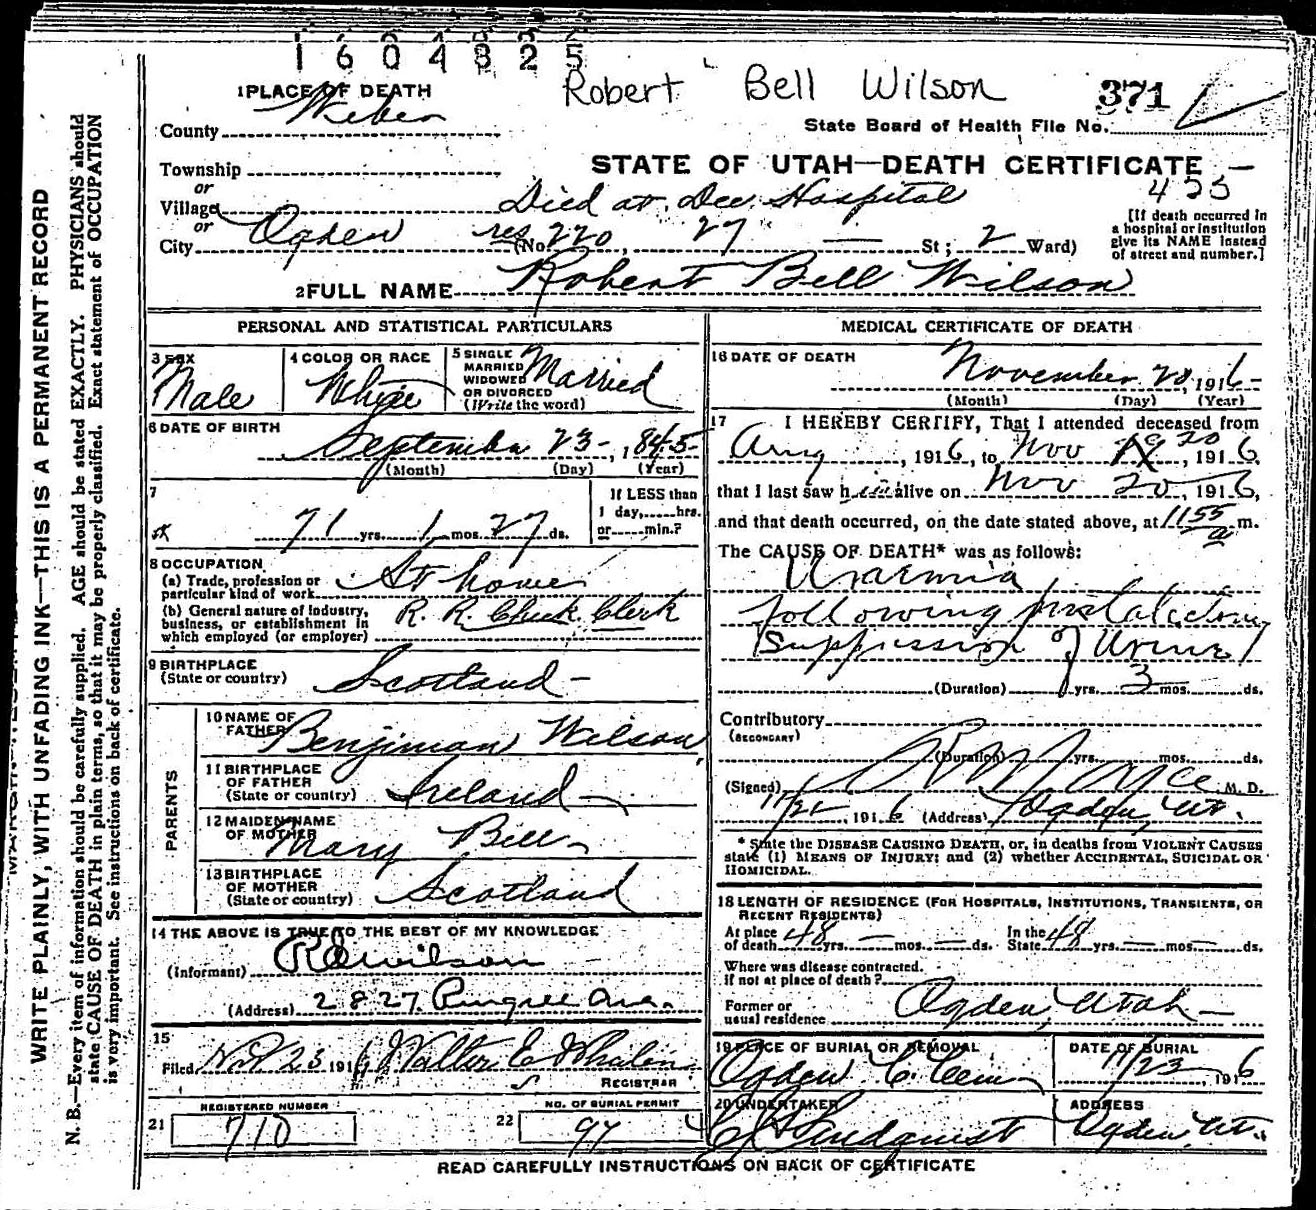 1604825
Robert Bell Wilson
371
1 PLACE OF DEATH
County Weber
State Board of Health File No.
STATE OF UTAH—DEATH CERTIFICATE
Township
or
Village
or
Died at Dee Hospital
City Ogden res (No. 220, 27 — St; 2 Ward)
[If death occurred in
a hospital or institution
give its NAME instead
of street and number.]
2 FULL NAME Robert Bell Wilson
PERSONAL AND STATISTICAL PARTICULARS
3 SEX
Male
4 COLOR OR RACE
White
5 SINGLE
MARRIED
WIDOWED
OR DIVORCED
(Write the word)
Married
6 DATE OF BIRTH
September 23-, 1845-
(Month) (Day) (Year)
7
71 yrs. 1 mos. 27 ds.
If LESS than
1 day,......hrs.
or......min.?
8 OCCUPATION
(a) Trade, profession or
particular kind of work At home
(b) General nature of industry,
business, or establishment in
which employed (or employer)
R. R. Check Clerk
9 BIRTHPLACE
(State or country) Scotland -
PARENTS
10 NAME OF
FATHER Benjiman Wilson
11 BIRTHPLACE
OF FATHER
(State or country) Ireland -
12 MAIDEN NAME
OF MOTHER Mary Bell
13 BIRTHPLACE
OF MOTHER
(State or country) Scotland
14 THE ABOVE IS TRUE TO THE BEST OF MY KNOWLEDGE
(Informant) Wilson
(Address) 2827 Pingree Ave.
15
Filed Nov 23 1916 Walter E Whalen
REGISTRAR
21
REGISTERED NUMBER
710
22
NO. OF BURIAL PERMIT
97
MEDICAL CERTIFICATE OF DEATH
16 DATE OF DEATH
November 20, 1916-
(Month) (Day) (Year)
17 I HEREBY CERTIFY, That I attended deceased from
Aug, 1916, to Nov 19 20, 1916,
that I last saw him alive on Nov 20, 1916,
and that death occurred, on the date stated above, at 1155 a m.
The CAUSE OF DEATH* was as follows:
Uraemia
following
Suppression of Urine
(Duration) yrs. 3 mos. ds.
Contributory
(SECONDARY)
(Duration) yrs. mos. ds.
(Signed) M. D.
11/22 1916 (Address) Ogden, Ut.
* State the DISEASE CAUSING DEATH, or, in deaths from VIOLENT CAUSES
state (1) MEANS OF INJURY; and (2) whether ACCIDENTAL, SUICIDAL OR
HOMICIDAL.
18 LENGTH OF RESIDENCE (FOR HOSPITALS, INSTITUTIONS, TRANSIENTS, OR
RECENT RESIDENTS)
At place
of death 48 yrs. — mos. — ds. In the
State 48 yrs. — mos. — ds.
Where was disease contracted.
if not at place of death?
Former or
usual residence Ogden, Utah -
19 PLACE OF BURIAL OR REMOVAL
Ogden C. Cem
DATE OF BURIAL
11/23, 1916
20 UNDERTAKER
Lindquist
ADDRESS
Ogden, Ut.
READ CAREFULLY INSTRUCTIONS ON BACK OF CERTIFICATE
WRITE PLAINLY, WITH UNFADING INK—THIS IS A PERMANENT RECORD
N. B.—Every item of information should be carefully supplied. AGE should be stated EXACTLY. PHYSICIANS should
state CAUSE OF DEATH in plain terms, so that it may be properly classified. Exact statement of OCCUPATION
is very important. See instructions on back of certificate.